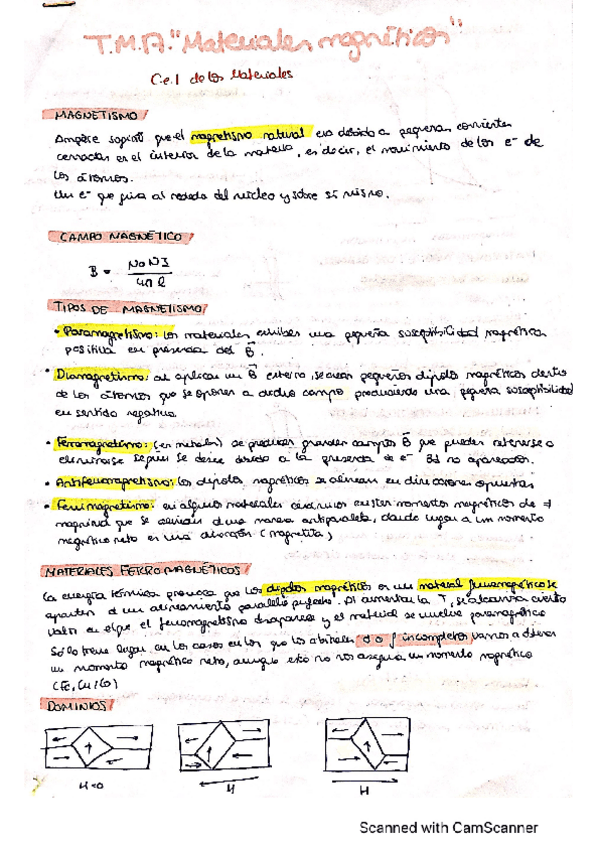 T.M.17."Materiales magnéticos"
C.e.1 de los Materiales
MAGNETISMO
Ampère supuso que el magnetismo natural era debido a pequeñas corrientes
cerradas en el interior de la materia, es decir, el movimiento de los e- de
los átomos.
Un e- que gira al rededor del núcleo y sobre sí mismo.
CAMPO MAGNÉTICO
B = N0 N I / 4π l
TIPOS DE MAGNETISMO
• Paramagnetismo: los materiales exhiben una pequeña susceptibilidad magnética
positiva en presencia del B.
• Diamagnetismo: al aplicar un B externo, se crean pequeños dipolos magnéticos dentro
de los átomos que se oponen a dicho campo produciendo una pequeña susceptibilidad
en sentido negativo.
• Ferromagnetismo: (en metales) se producen grandes campos B que pueden retenerse o
eliminarse según se desee debido a la presencia de e- 3d no apareados.
• Antiferromagnetismo: los dipolos magnéticos se alinean en direcciones opuestas
• Ferrimagnetismo: en algunos materiales cerámicos existen momentos magnéticos de ≠
magnitud que se alinean d una manera antiparalela, dando lugar a un momento
magnético neto en una dirección (magnetita)
MATERIALES FERROMAGNÉTICOS
La energía térmica provoca que los dipolos magnéticos en un material ferromagnético se
aparten d un alineamiento paralelo perfecto. Si aumentar la T, se alcanza cierto
valor en el que el ferromagnetismo desaparece y el material se vuelve paramagnético
Sólo tiene lugar en los casos en los que los orbitales d o f incompletos vamos a obtener
un momento magnético neto, aunque esto no nos asegura un momento magnético
(Fe, Cu, Co)
DOMINIOS
H=0
H
H
Scanned with CamScanner